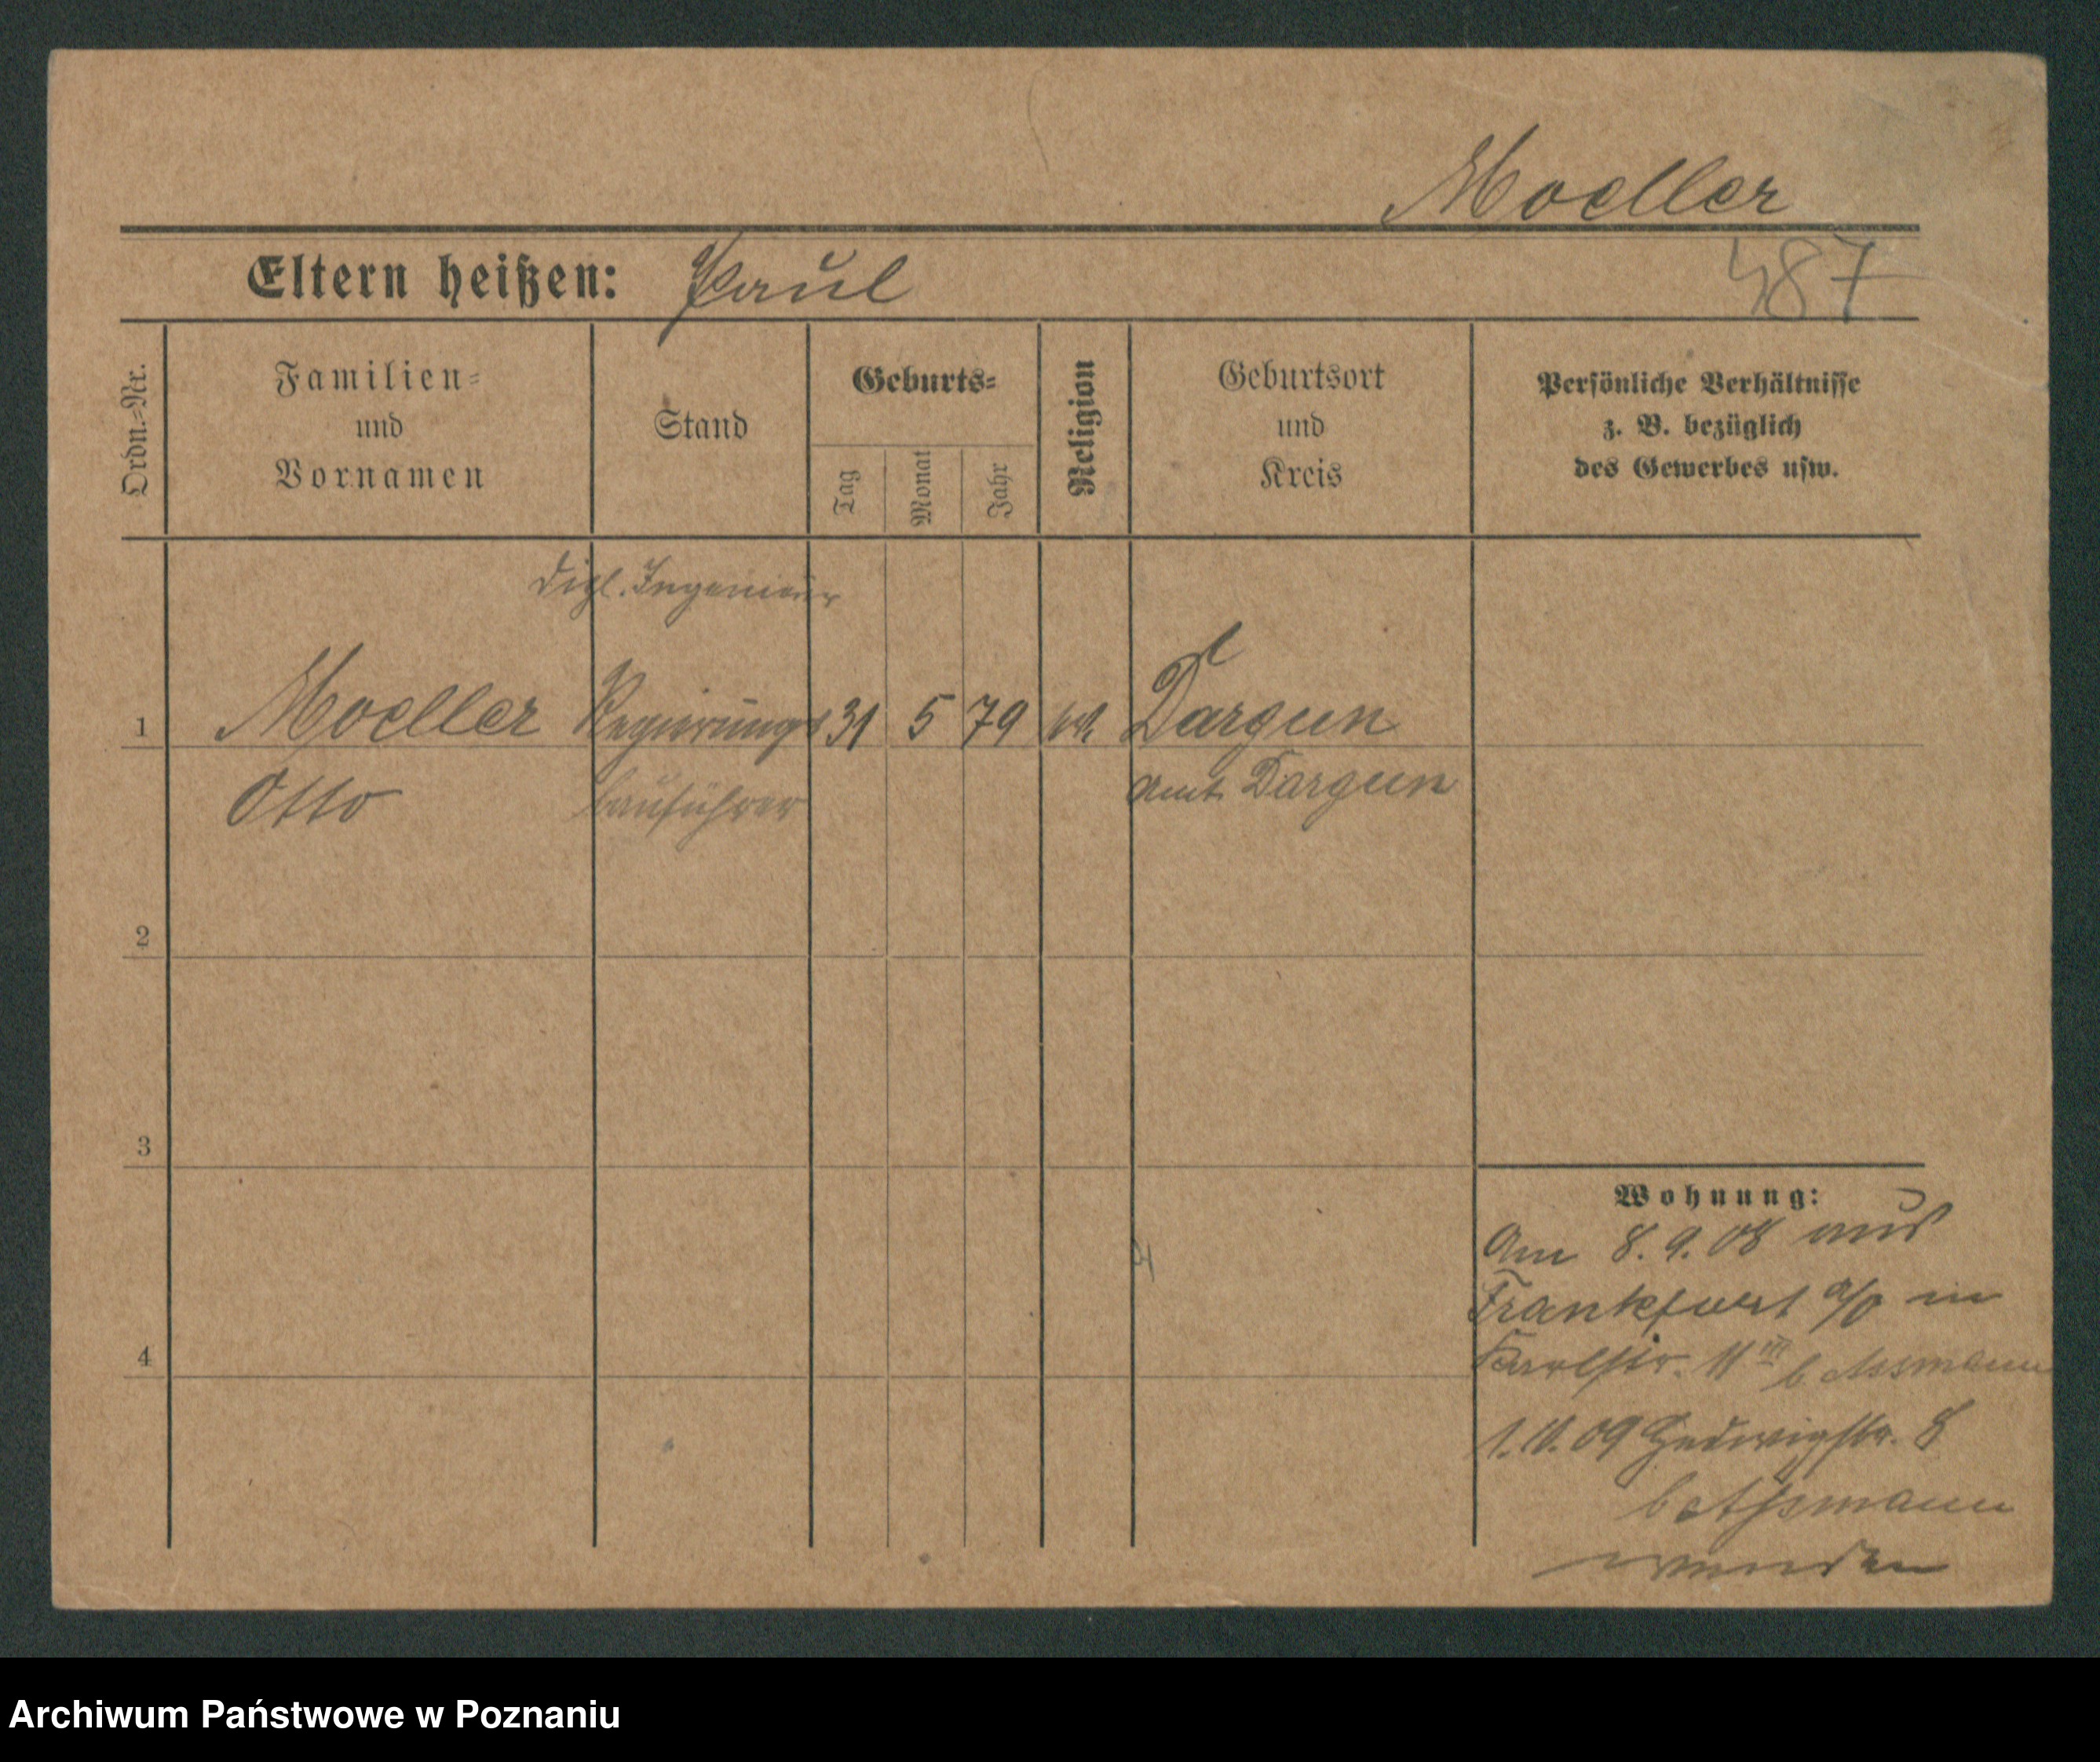 Moeller
Eltern heißen: Paul
487
Ordn.=Nr.
Familien=
und
Vornamen
Stand
Geburts=
Tag
Monat
Jahr
Religion
Geburtsort
und
Kreis
Persönliche Verhältnisse
z. B. bezüglich
des Gewerbes usw.
Dipl. Ingenieur
1 Moeller Regierungs 31 5 79 Dargun
Otto bauführer Amt Dargun
2
3
4
Wohnung:
Am 8. 9. 08 aus
Frankfurt a/O in
Karlstr. 11 III b Assmann
1.10.09 Hedwigstr. 8
b Assmann
Archiwum Państwowe w Poznaniu